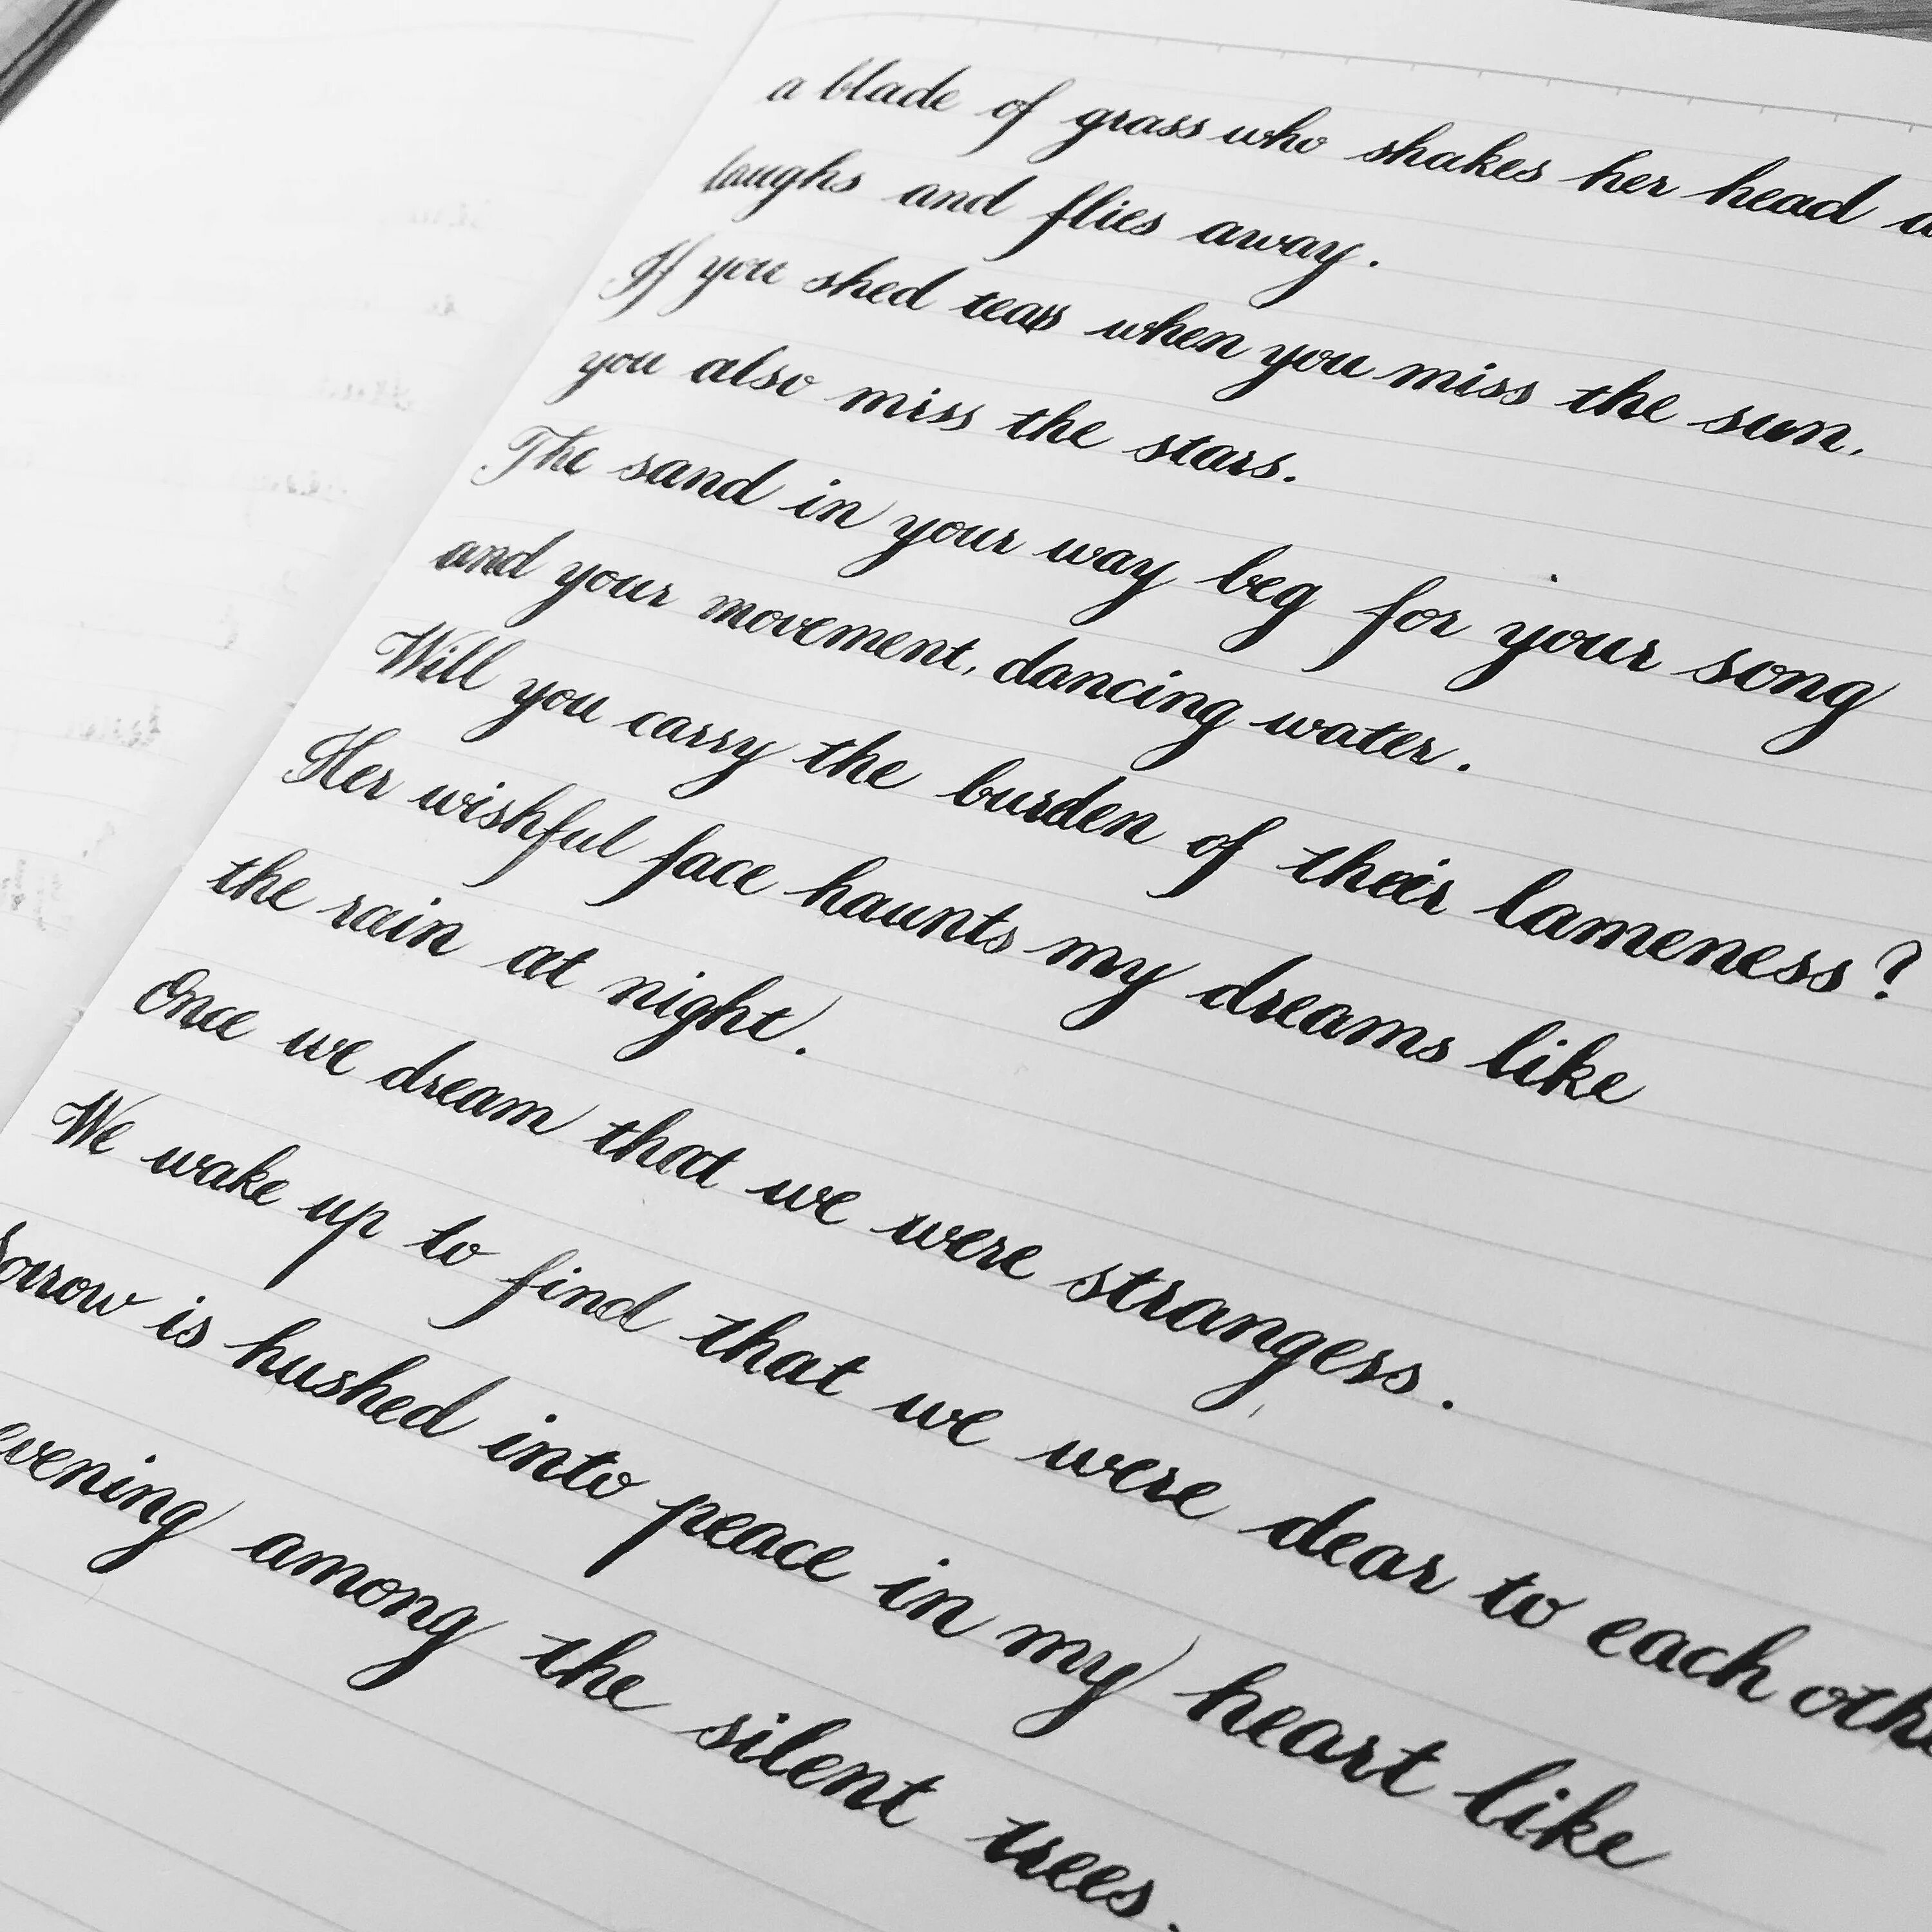 a blade of grass who shakes her head a
laughs and flies away.
If you shed tears when you miss the sun,
you also miss the stars.
The sand in your way beg for your song
and your movement, dancing water.
Will you carry the burden of their lameness?
Her wishful face haunts my dreams like
the rain at night.
Once we dream that we were strangers.
We wake up to find that we were dear to each othe
Sorrow is hushed into peace in my heart like
evening among the silent trees.